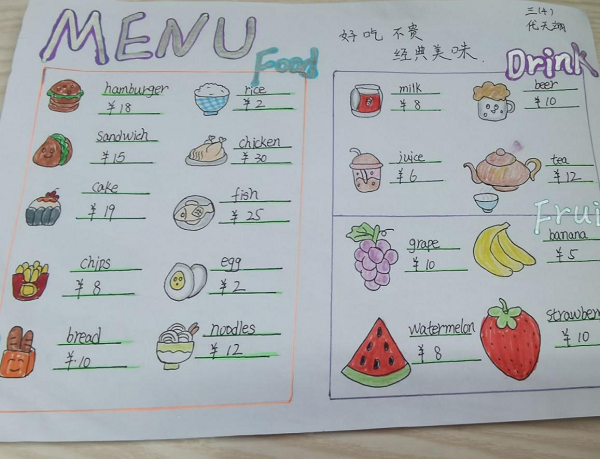 MENU
好吃 不贵
经典美味
三(4)
Food
hamburger
¥18
rice
¥2
sandwich
¥15
chicken
¥30
cake
¥19
fish
¥25
chips
¥8
egg
¥2
bread
¥10
noodles
¥12
Drink
milk
¥8
beer
¥10
juice
¥6
tea
¥12
Frui
grape
¥10
banana
¥5
watermelon
¥8
strawberr
¥10